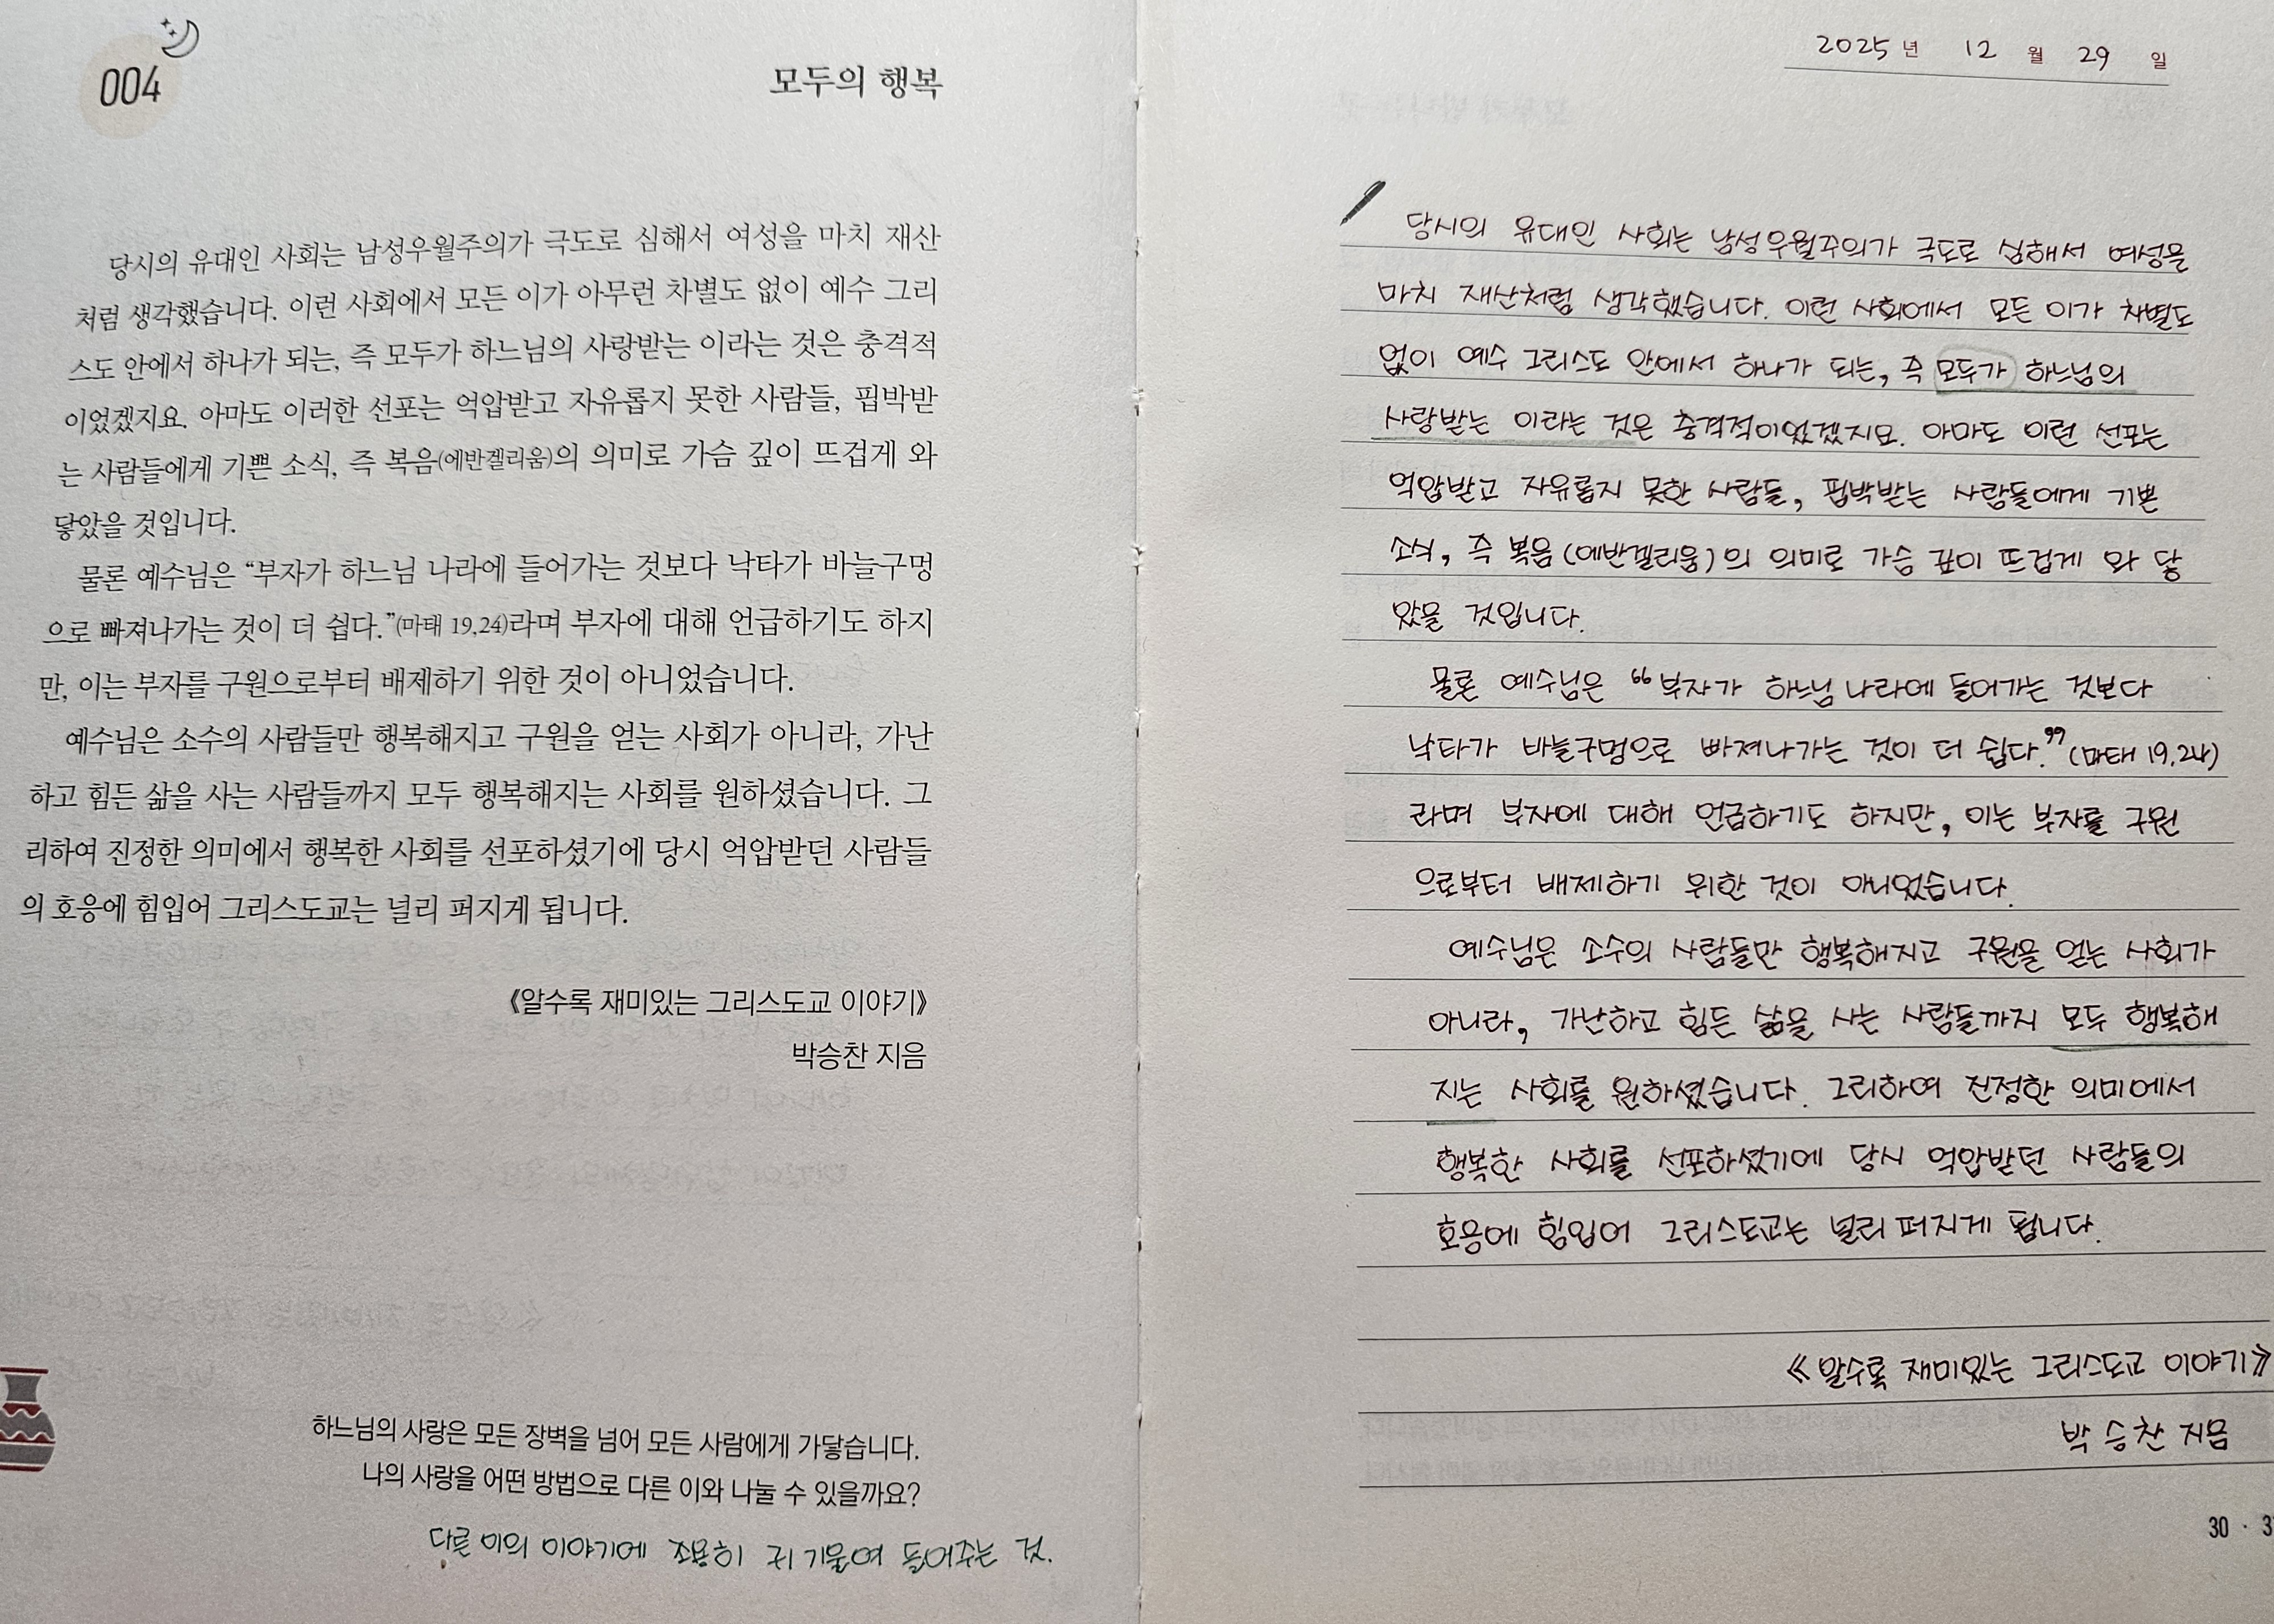 004
모두의 행복
당시의 유대인 사회는 남성우월주의가 극도로 심해서 여성을 마치 재산
처럼 생각했습니다. 이런 사회에서 모든 이가 아무런 차별도 없이 예수 그리
스도 안에서 하나가 되는, 즉 모두가 하느님의 사랑받는 이라는 것은 충격적
이었겠지요. 아마도 이러한 선포는 억압받고 자유롭지 못한 사람들, 핍박받
는 사람들에게 기쁜 소식, 즉 복음(에반겔리움)의 의미로 가슴 깊이 뜨겁게 와
닿았을 것입니다.
물론 예수님은 “부자가 하느님 나라에 들어가는 것보다 낙타가 바늘구멍
으로 빠져나가는 것이 더 쉽다.”(마태 19,24)라며 부자에 대해 언급하기도 하지
만, 이는 부자를 구원으로부터 배제하기 위한 것이 아니었습니다.
예수님은 소수의 사람들만 행복해지고 구원을 얻는 사회가 아니라, 가난
하고 힘든 삶을 사는 사람들까지 모두 행복해지는 사회를 원하셨습니다. 그
리하여 진정한 의미에서 행복한 사회를 선포하셨기에 당시 억압받던 사람들
의 호응에 힘입어 그리스도교는 널리 퍼지게 됩니다.
《알수록 재미있는 그리스도교 이야기》
박승찬 지음
하느님의 사랑은 모든 장벽을 넘어 모든 사람에게 가닿습니다.
나의 사랑을 어떤 방법으로 다른 이와 나눌 수 있을까요?
다른 이의 이야기에 조용히 귀 기울여 들어주는 것.
2025년 12월 29일
당시의 유대인 사회는 남성우월주의가 극도로 심해서 여성을
마치 재산처럼 생각했습니다. 이런 사회에서 모든 이가 차별도
없이 예수 그리스도 안에서 하나가 되는, 즉 모두가 하느님의
사랑받는 이라는 것은 충격적이었겠지요. 아마도 이런 선포는
억압받고 자유롭지 못한 사람들, 핍박받는 사람들에게 기쁜
소식, 즉 복음(에반겔리움)의 의미로 가슴 깊이 뜨겁게 와 닿
았을 것입니다.
물론 예수님은 “부자가 하느님 나라에 들어가는 것보다
낙타가 바늘구멍으로 빠져나가는 것이 더 쉽다.”(마태 19,24)
라며 부자에 대해 언급하기도 하지만, 이는 부자를 구원
으로부터 배제하기 위한 것이 아니었습니다.
예수님은 소수의 사람들만 행복해지고 구원을 얻는 사회가
아니라, 가난하고 힘든 삶을 사는 사람들까지 모두 행복해
지는 사회를 원하셨습니다. 그리하여 진정한 의미에서
행복한 사회를 선포하셨기에 당시 억압받던 사람들의
호응에 힘입어 그리스도교는 널리 퍼지게 됩니다.
《알수록 재미있는 그리스도교 이야기》
박승찬 지음
30 ·